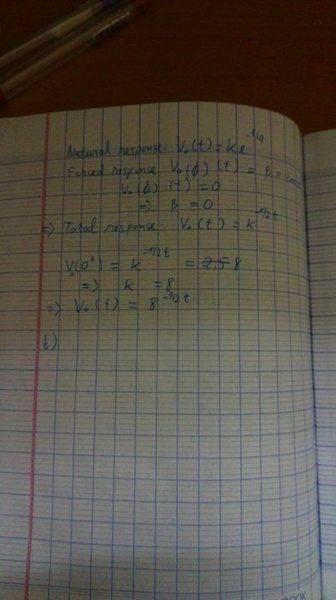 Natural response: V₀(t) = Ke
Forced response V₀(ϕ)(t) = β =
V₀(ϕ)(t) = 0
=> β = 0
=> Total response: V₀(t) = K^-1/2 t
V₀(0⁺) = K^-1/2 t = 8
=> K = 8
=> V₀(t) = 8^-1/2 t
b)